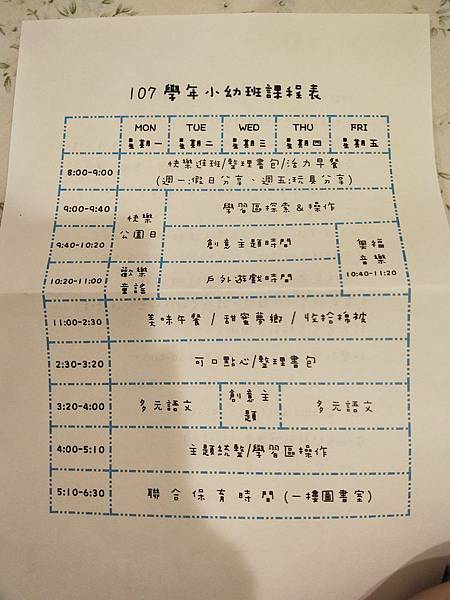 107 學年小幼班課程表
MON TUE WED THU FRI
星期一 星期二 星期三 星期四 星期五
8:00-9:00 快樂進班/整理書包/活力早餐
(週一:假日分享、週五:玩具分享)
9:00-9:40 快樂 學習區探索&操作
公園日
9:40-10:20 創意主題時間 奧福
音樂
10:40-11:20
10:20-11:00 歡樂 戶外遊戲時間
童謠
11:00-2:30 美味午餐 / 甜蜜夢鄉 / 收拾棉被
2:30-3:20 可口點心/整理書包
3:20-4:00 多元語文 創意主 多元語文
題
4:00-5:10 主題統整/學習區操作
5:10-6:30 聯合保育時間 (一樓圖書室)